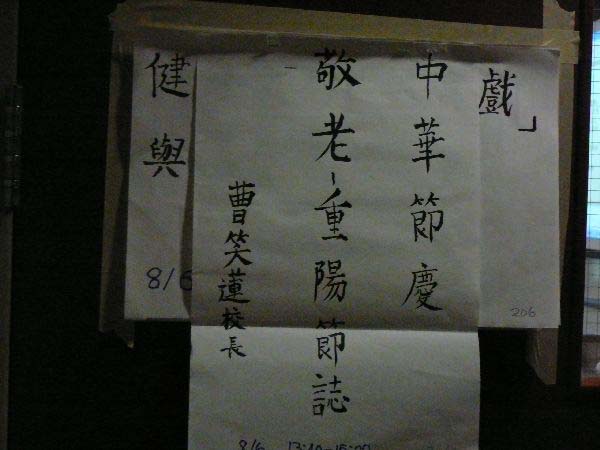 戲」
206
中華節慶
敬老~重陽節誌
曹笑蓮校長
8/6 13:10-15:00
健與
8/6